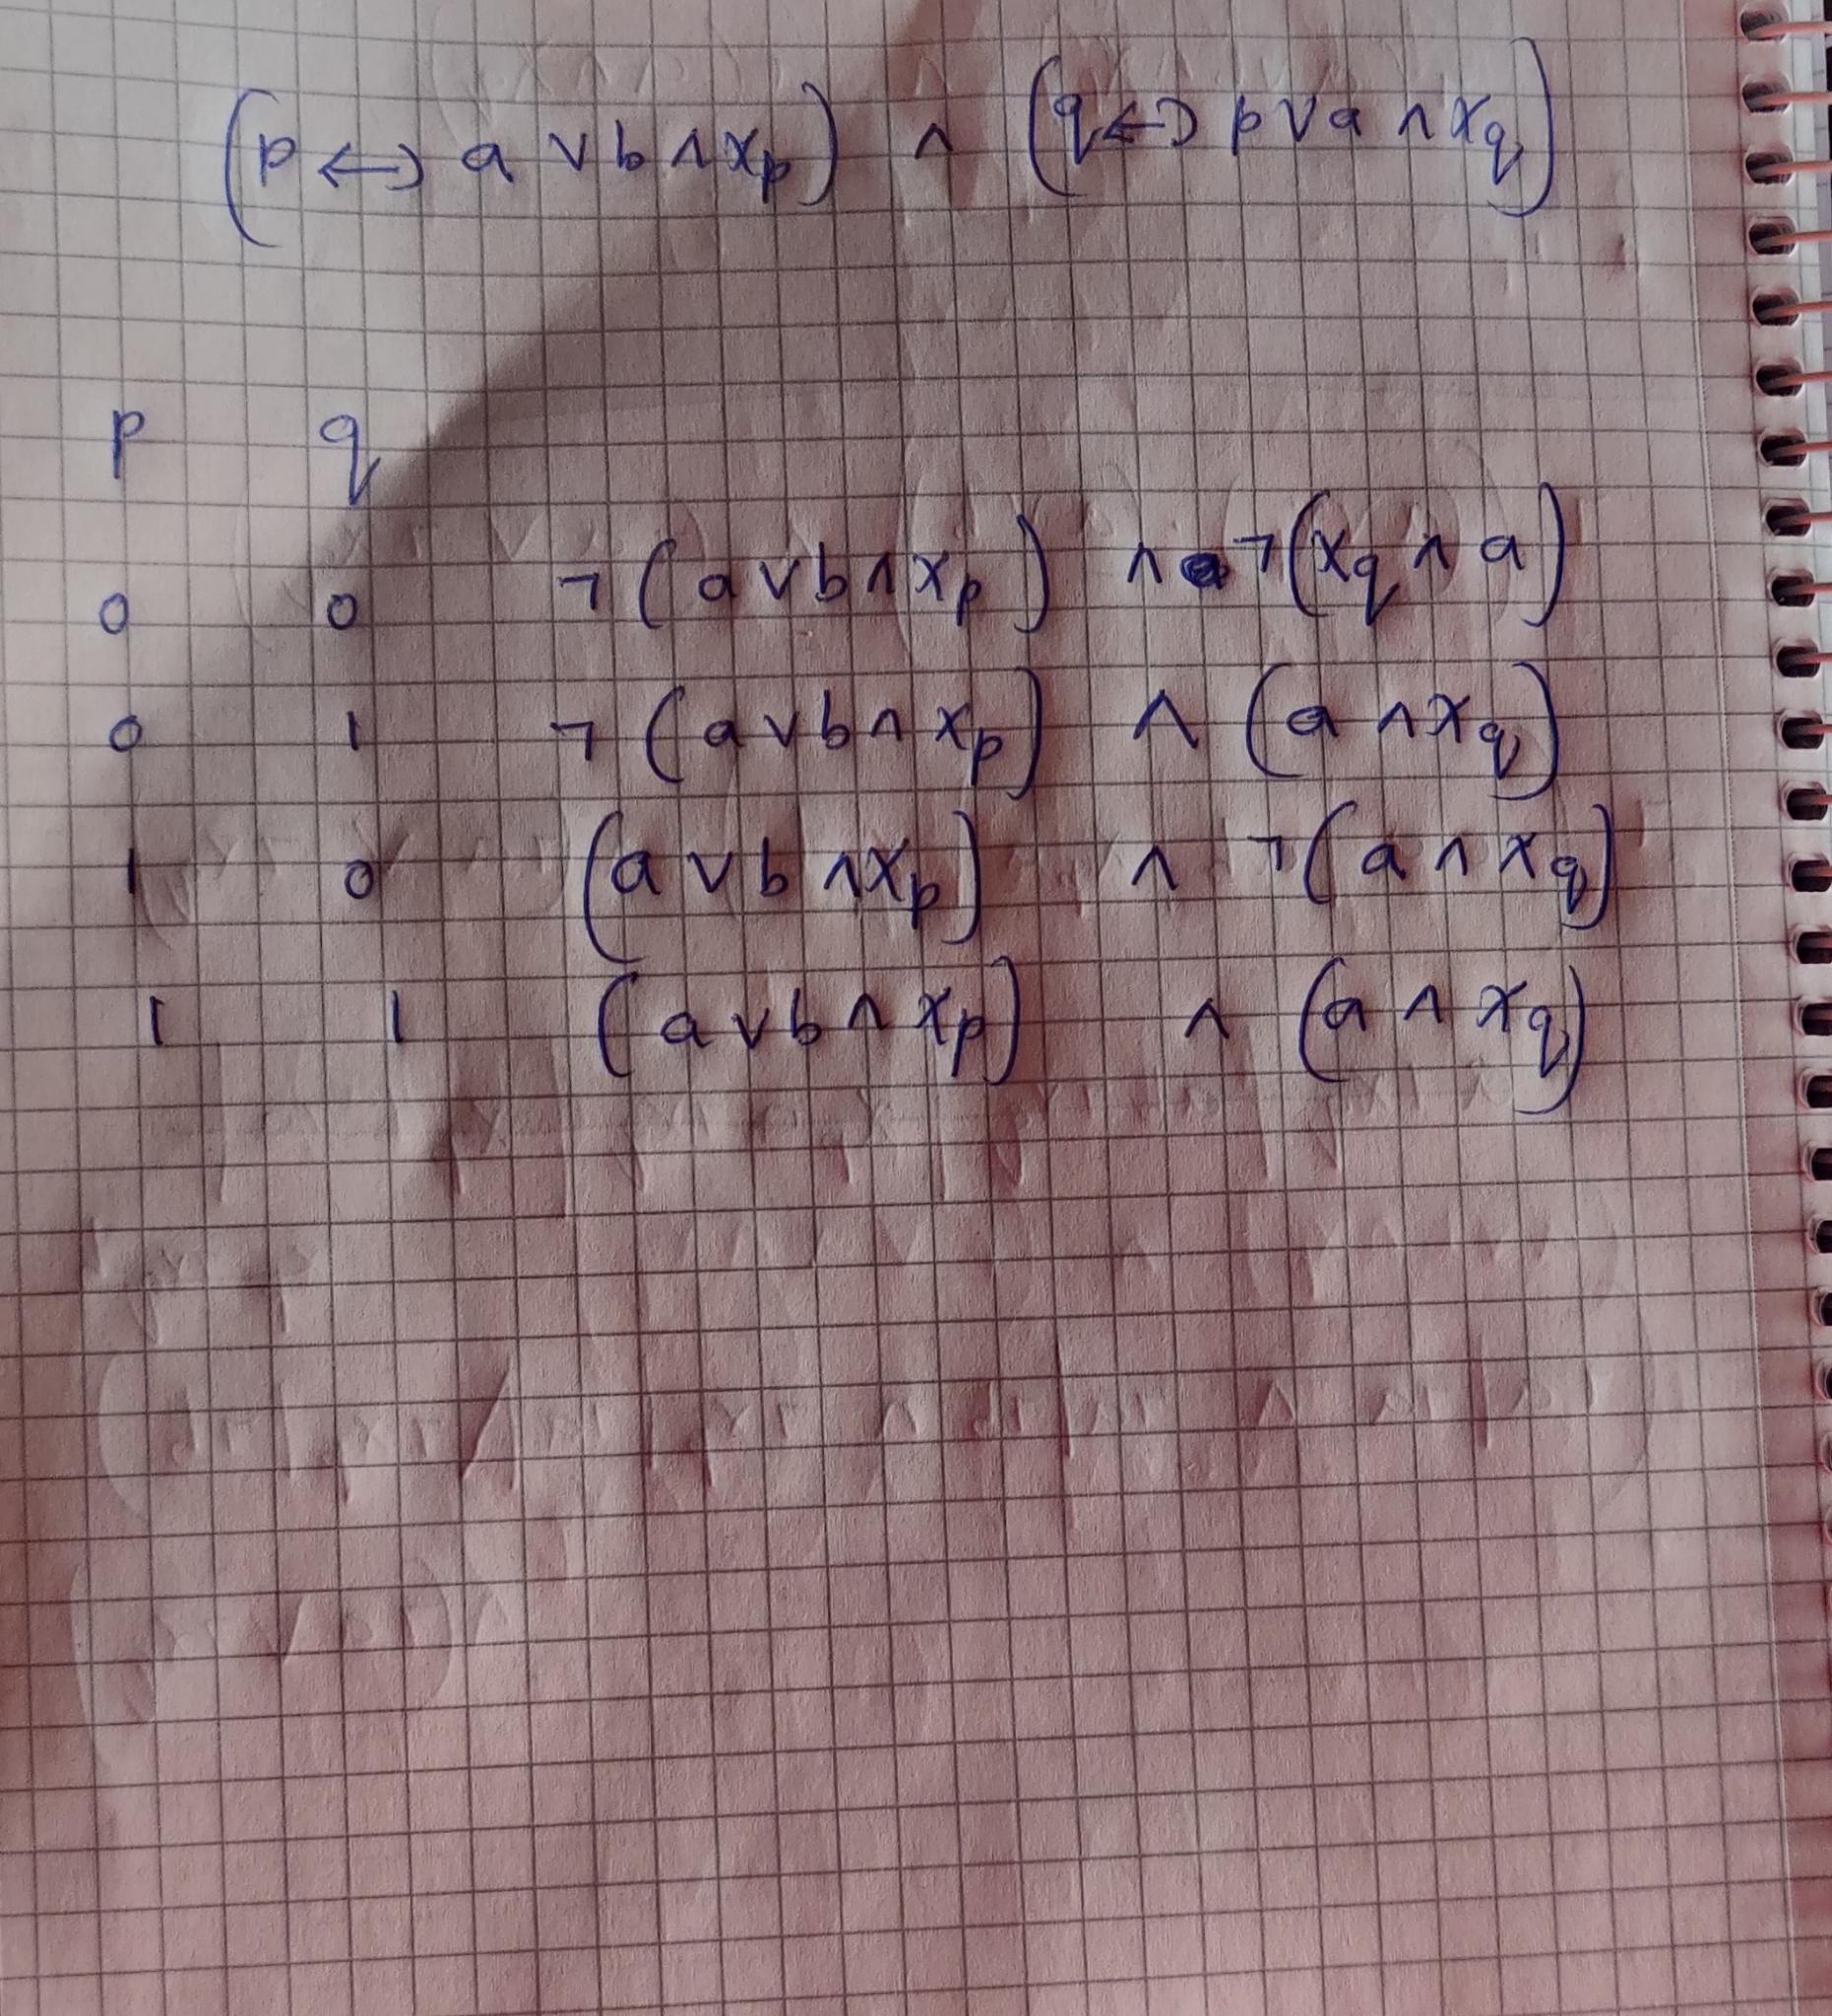 (p ↔ a ∨ b ∧ xₚ) ∧ (q ↔ p ∨ a ∧ x_q)
p q
0 0 ¬(a ∨ b ∧ xₚ) ∧ ¬(x_q ∧ a)
0 1 ¬(a ∨ b ∧ xₚ) ∧ (a ∧ x_q)
1 0 (a ∨ b ∧ xₚ) ∧ ¬(a ∧ x_q)
1 1 (a ∨ b ∧ xₚ) ∧ (a ∧ x_q)